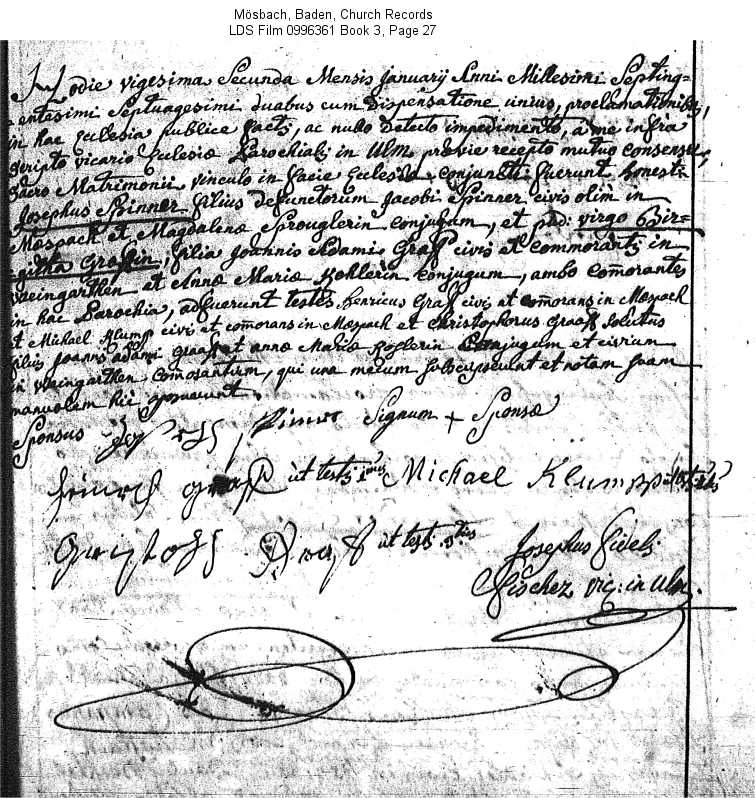 Mösbach, Baden, Church Records
LDS Film 0996361 Book 3, Page 27
Hodie vigesima Secunda Mensis January Anni Millesimi Septing=
entesimi Septuagesimi duabus cum dispensatione unius, proclamationibus,
in hac Ecclesia publice factis, ac nullo detecto impedimento, a me infra
scripto vicario Ecclesiæ Parochialis in Ulm prævie recepto mutuo consensu,
Sacro Matrimonii vinculo in facie Ecclesiæ conjuncti fuerunt honesti
Josephus Spinner filius defunctorum Jacobi Spinner civis olim in
Mœspach et Magdalenæ Sprouglerin conjugum, et pud: virgo Bir=
githa Grasin, filia Joannis Adami Grass civis et commorantis in
Waeingarthen et Annæ Mariæ Kohlerin conjugum, ambo comorantes
in hac Parochia, adfuerunt testes henricus Grass civis et comorans in Mœspach
et Michael Klump civis et comorans in Mœspach et Christophorus Graass solutus
filius Joannis adami graass et annæ Mariæ Koglerin Conjugum et civium
in Waeingarthen Comorantium, qui una mecum subscripserunt et notam suam
manualem hic apposuerunt.
Sponsus Joseph Spinner Signum + Sponsæ
Heinrich grass ut testis 1mus Michael Klumpp ut testis 2dus
Christoph Grass ut testis 3tius Josephus Fidelis
Fischer vic: in Ulm.